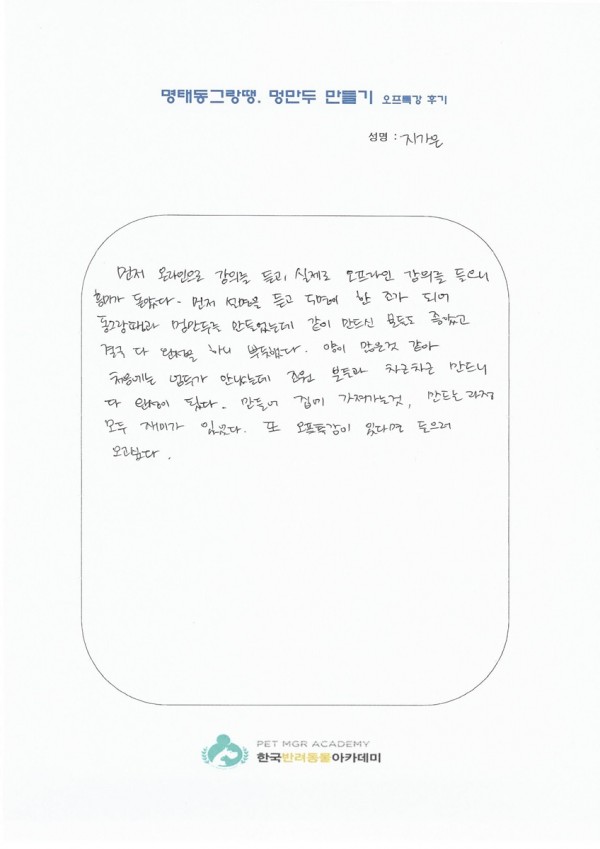 명태동그랑땡. 멍만두 만들기 오프특강 후기
성명 : 지가은
먼저 온라인으로 강의를 듣고, 실제로 오프라인 강의를 들으니
흥미가 돋았다. 먼저 설명을 듣고 두명에 한 조가 되어
동그랑땡과 멍만두를 만들었는데 같이 만드신 분들도 좋았고
결국 다 완성을 하니 뿌듯했다. 양이 많은것 같아
처음에는 엄두가 안났는데 조원 분들과 차근차근 만드니
다 완성이 됬다. 만들어 집에 가져가는것, 만드는 과정
모두 재미가 있었다. 또 오프특강이 있다면 들으러
오고싶다.
PET MGR ACADEMY
한국반려동물아카데미